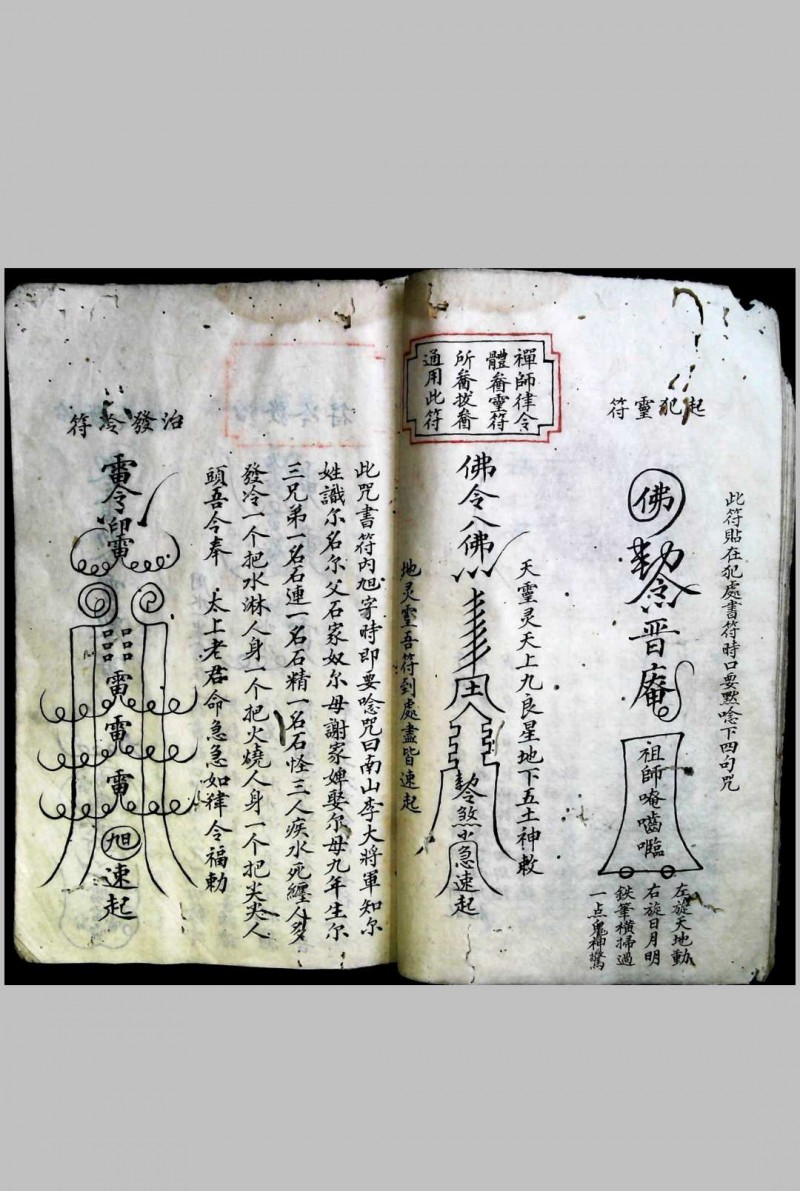 起犯靈符
此符貼在犯處書符時口要默唸下四句咒
佛
勅令
晋庵
祖師唵嚙囓
左旋天地動
右旋日月明
鉄筆橫掃過
一点鬼神驚
天靈灵天上九良星地下五土神敕
禪師律令
體畨靈符
所畨拔畨
通用此符
佛令八佛
土
勅令煞
急速起
地灵靈吾符到處盡皆速起
此咒書符內旭字時即要唸咒曰南山李大將軍知尔
姓識尔名尔父石家奴尔母謝家婢娶尔母九年生尔
三兄弟一名石連一名石精一名石怪三人疾水死纏人多
發冷一个把水淋人身一个把火燒人身一个把尖尖人
頭吾今奉 太上老君命急急如律令福勅
治發冷符
雷令印雷
雷
雷
雷
旭
速起